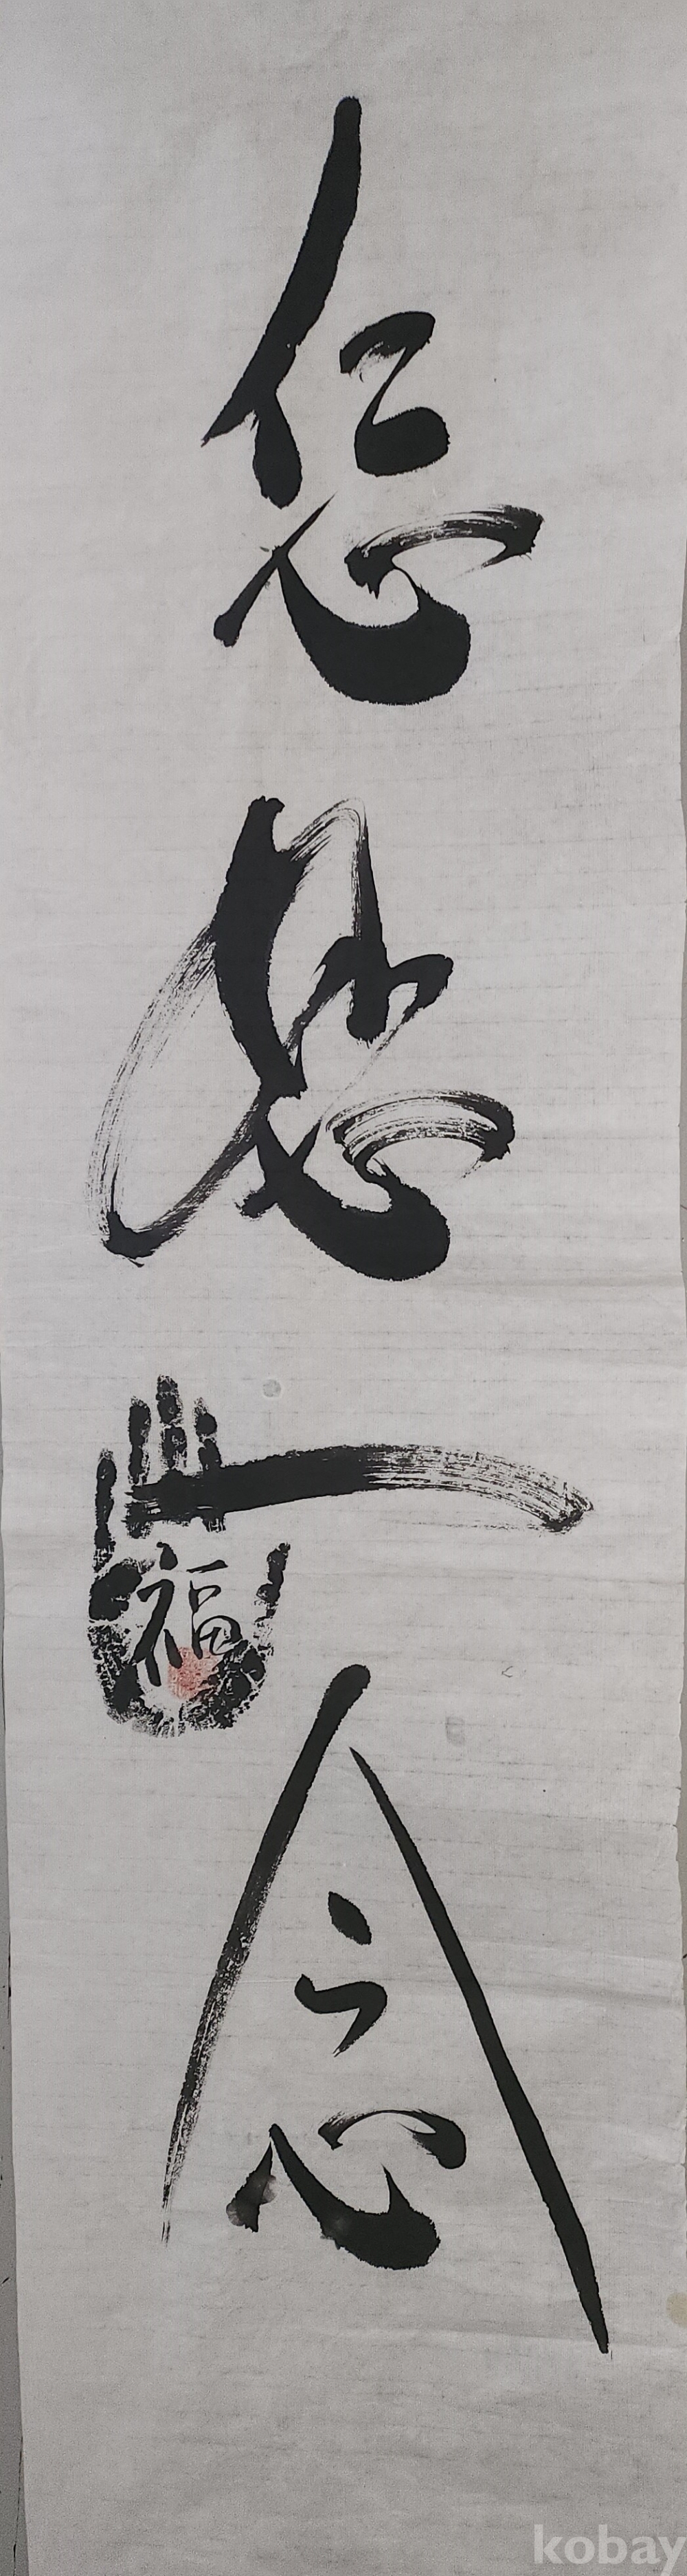 恕一念
福
kobay